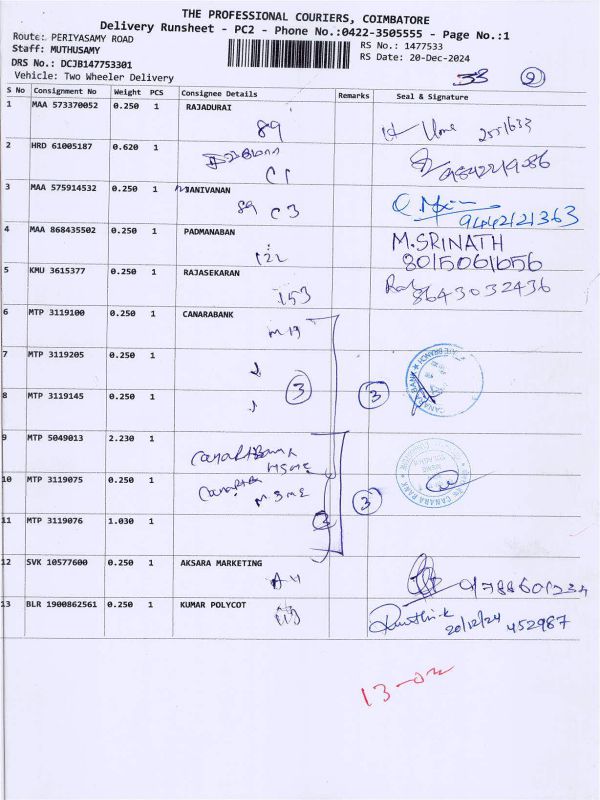 THE PROFESSIONAL COURIERS, COIMBATORE
Delivery Runsheet - PC2 - Phone No.:0422-3505555 - Page No.:1
Route: PERIYASAMY ROAD
RS No.: 1477533
Staff: MUTHUSAMY
RS Date: 20-Dec-2024
DRS No.: DCJB147753301
Vehicle: Two Wheeler Delivery
33 9
S No Consignment No Weight PCS Consignee Details Remarks Seal & Signature
1 MAA 573370052 0.250 1 RAJADURAI
89 2551633
2 HRD 61005187 0.620 1
C1 9842219086
3 MAA 575914532 0.250 1 MANIVANAN
89 C3 9442121363
4 MAA 868435502 0.250 1 PADMANABAN M.SRINATH
122 8015061656
5 KMU 3615377 0.250 1 RAJASEKARAN
153 8643032436
6 MTP 3119100 0.250 1 CANARABANK
7 MTP 3119205 0.250 1
3 3
CANARA BANK
8 MTP 3119145 0.250 1
9 MTP 5049013 2.230 1
Canara Bank
MSME
10 MTP 3119075 0.250 1
MSME
3
CANARA BANK
11 MTP 3119076 1.030 1
3
12 SVK 10577600 0.250 1 AKSARA MARKETING
A4
13 BLR 1900862561 0.250 1 KUMAR POLYCOT
113 20/12/24 452987